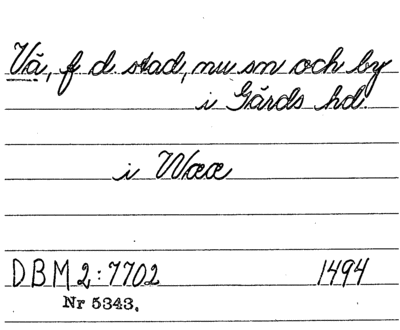 Vä, f d. stad, nu sn och by
i Gärds hd.
i Wææ
DBM 2:7702 1494
Nr 5343.